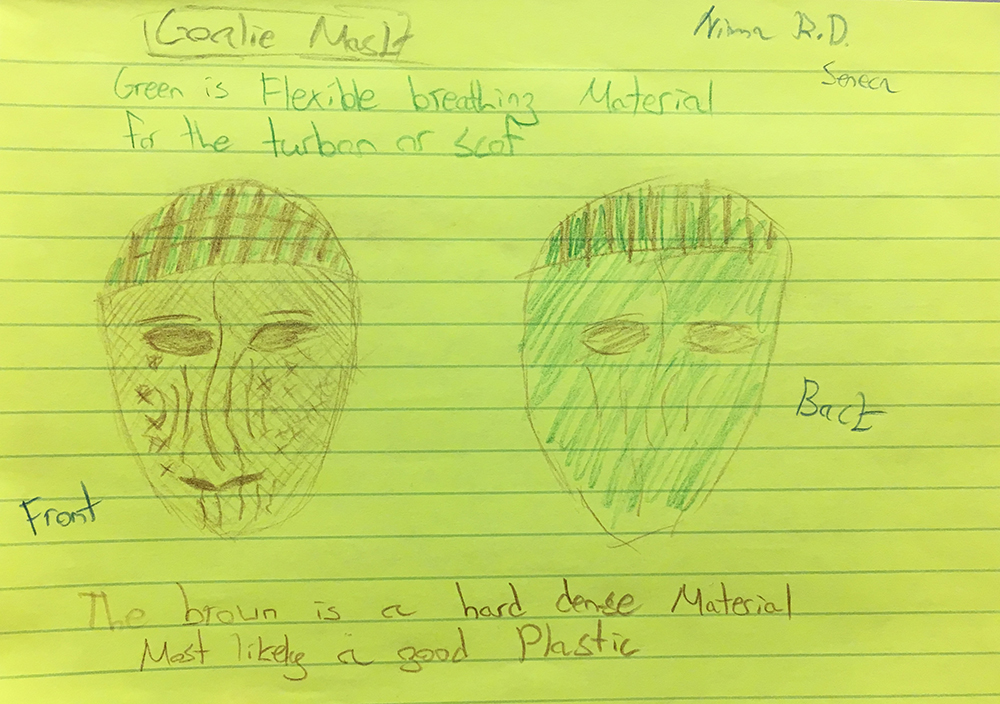 Goalie Mask
Nima R.D.
Seneca
Green is Flexible breathing Material
for the turban or scof
Front
Back
The brown is a hard dense Material
Most likely a good Plastic